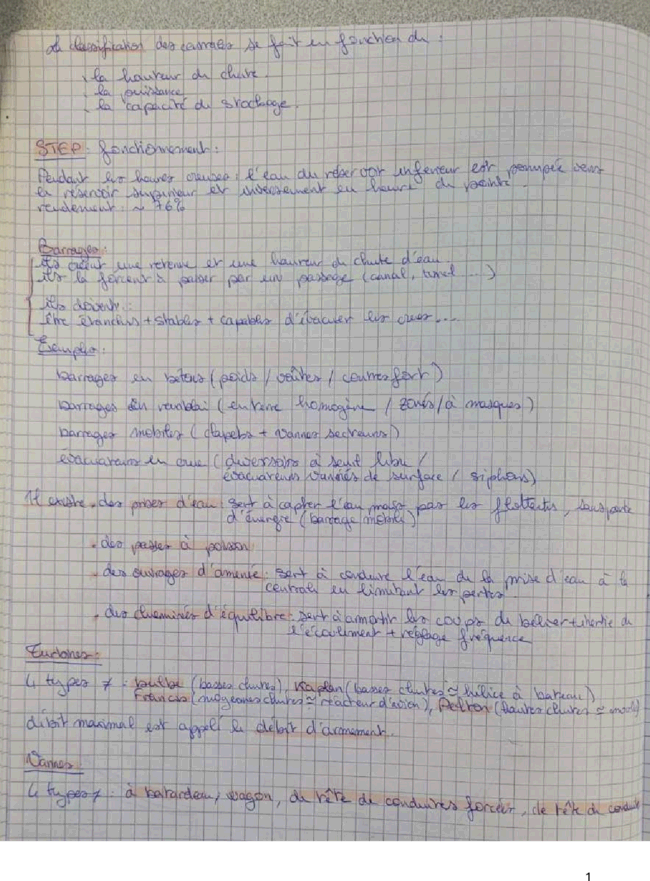 classification des centrales se fait en fonction du :
. la hauteur de chute.
. la puissance
. la capacité de stockage.
STEP : fonctionnement :
Pendant les heures creuses l'eau du réservoir inférieur est pompée vers
le réservoir supérieur et inversement en heure de pointe.
rendement : ~ 76%
Barrages :
ils créent une retenue et une hauteur de chute d'eau
ils la forcent à passer par un passage (canal, tunnel ...)
ils doivent :
être étanches + stables + capables d'évacuer les crues ...
Exemples :
barrages en bétons (poids / voûtes / contrefort)
barrages en remblai (en terre homogène / zonés / à masques)
barrages mobiles (clapets + vannes secteurs)
évacuateurs en crue (diversoirs à seuil libre /
évacuateurs vannés de surface / siphons)
Il existe . des prises d'eau : sert à capter l'eau mais pas les flottants, sans perte
d'énergie (barrage mobile)
. des passes à poisson
. des ouvrages d'amenée : sert à conduire l'eau de la prise d'eau à la
centrale en limitant les pertes.
. des cheminées d'équilibre : sert à amortir les coups de bélier + inertie de
l'écoulement + réglage fréquence
Turbines :
4 types ≠ : bulbe (basses chutes), Kaplan (basses chutes ≃ hélice à bateau)
Francis (moyennes chutes ≃ réacteur d'avion), Pelton (hautes chutes ≃
débit maximal est appelé le débit d'armement.
Vannes
4 types ≠ : à batardeau, wagon, de tête de conduites forcées, de tête de
1